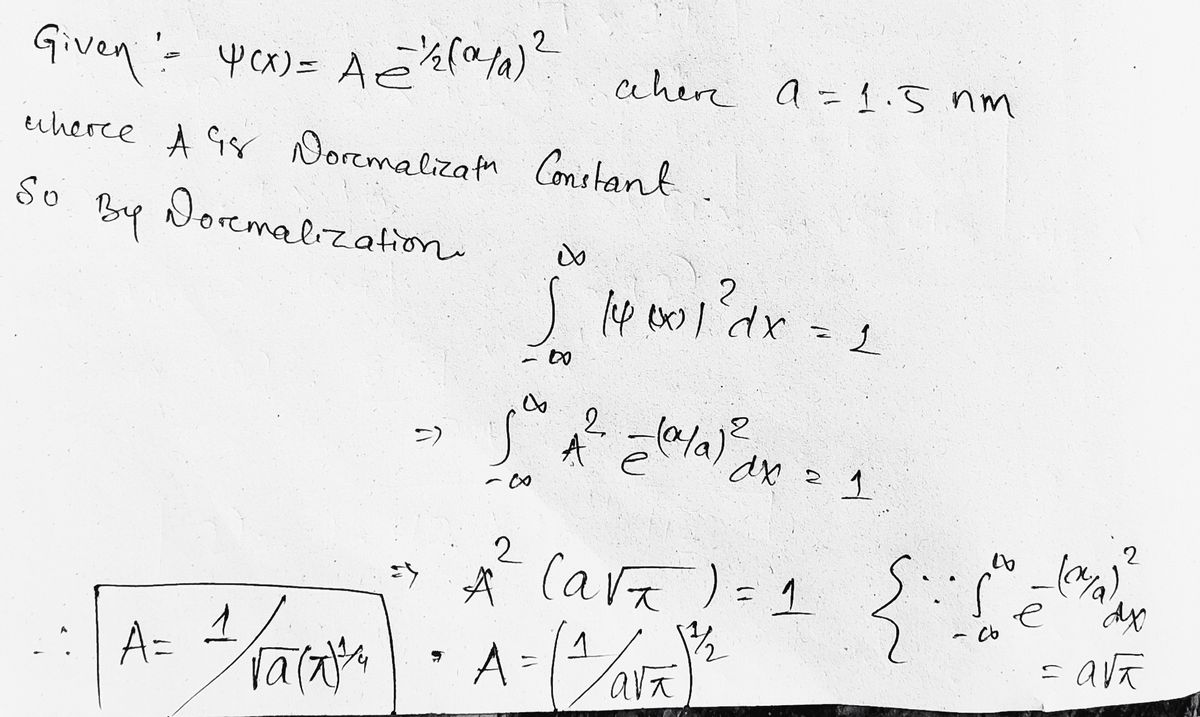 Given :- ψ(x) = A e^{-1/2(x/a)^2} where a = 1.5 nm
where A is Normalizatn Constant.
So By Normalization
∫_{-∞}^{∞} |ψ(x)|^2 dx = 1
⇒ ∫_{-∞}^{∞} A^2 e^{-(x/a)^2} dx = 1
⇒ A^2 (a√π) = 1 { ∵ ∫_{-∞}^{∞} e^{-(x/a)^2} dx
∴ A = 1/√a(π)^{1/4} • A = (1/a√π)^{1/2} = a√π